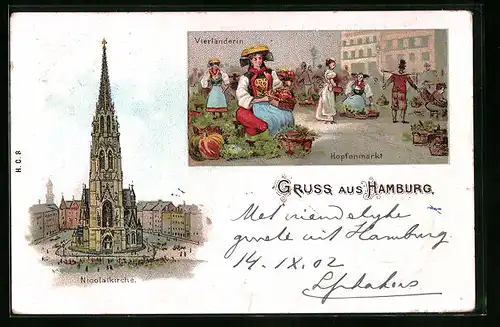 Vierländerin
Hopfenmarkt
H. C. 8
GRUSS AUS HAMBURG.
Met vriendelyke
groete uit Hamburg
14. IX. 02
Nicolaikirche.